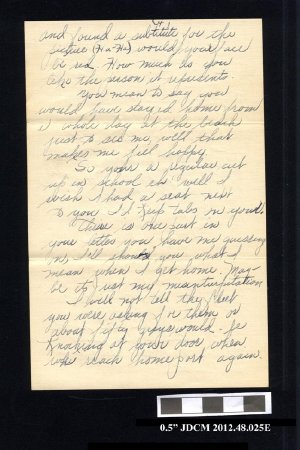 and found a substitute for the
picture (Ha-Ha) would your face
be red. How much do you
like the person it represents
You mean to say you
would have stayed home from
a whole day at the beach
just to see me, well that
makes me feel happy.
So your a regular cut
up in school eh well I
wish I had a seat next
to you I'd keep tabs on you.
There is one part in
your letter you have me guessing
on, I'll show you what I
mean when I get home. May-
be its just my misinterpretation
I will not tell the
you were asking for them or
about fifty guys would be
knocking at your door when
we reach home port again.
0.5" JDCM 2012.48.025E